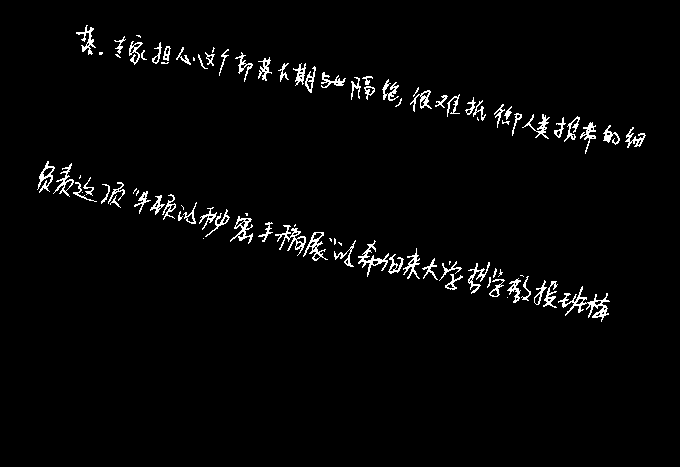 落。专家担心这个部落长期与世隔绝,很难抵御人类携带的细
负责这项“牛顿的秘密手稿展”的希伯来大学哲学教授班梅